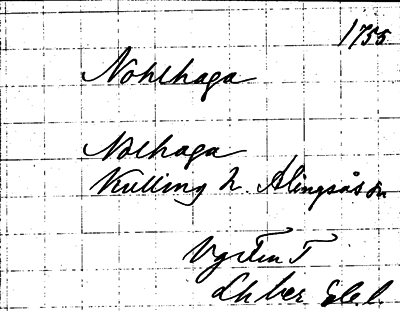 1755
Nohlhaga
Nolhaga
Kulling h. Alingsås sn
Vg
Lh ber